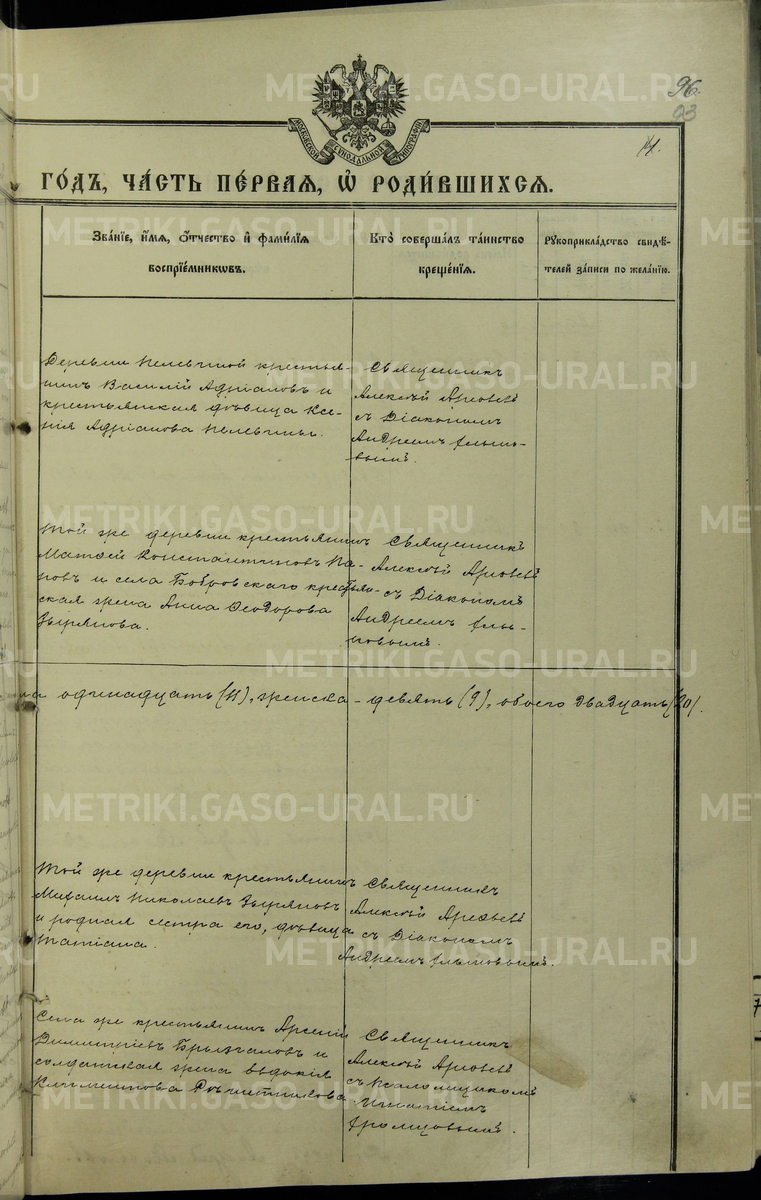 96.
93
14.
МОСКОВСКОЙ СѴНОДАЛЬНОЙ ТИПОГРАФІИ
ГО́ДЪ, ЧА́СТЬ ПЕ́РВАЯ, Ѽ РОДИ́ВШИХСЯ.
Зва́нїе, и҆́мя, ѻ҆́тчество и҆ фами́лїя
воспрїе́мникѡвъ.
Кто̀ соверша́лъ та́инство
креще́нїя.
Рꙋкоприкла́дство свидѣ́-
телей за́писи по жела́нїю.
Деревни Пелевиной крестья-
нинъ Василій Адріановъ и
крестьянская дѣвица Ксе-
нія Адріанова Пелевины.
Священникъ
Алексѣй Арефьевъ
съ Діакономъ
Андреемъ
Той же деревни крестьянинъ
Матѳей Константиновъ По-
повъ и села Бобровскаго крестьян-
ская жена Анна Ѳеодорова
Зырянова.
Священникъ
Алексѣй Арефьевъ
съ Діакономъ
Андреемъ
одинадцать (11), женска - девять (9), обоего двадцать (20).
Той же деревни крестьянинъ
Михаилъ Николаевъ Зыряновъ
и родная сестра его, дѣвица
Татіана.
Священникъ
Алексѣй Арефьевъ
съ Діакономъ
Андреемъ
Села же крестьянинъ Арсеній
Димитріевъ Брызгаловъ и
солдатская жена Евдокія
Климентова Рѣшетникова
Священникъ
Алексѣй Арефьевъ
съ Псаломщикомъ
Игнатіемъ
METRIKI.GASO-URAL.RU